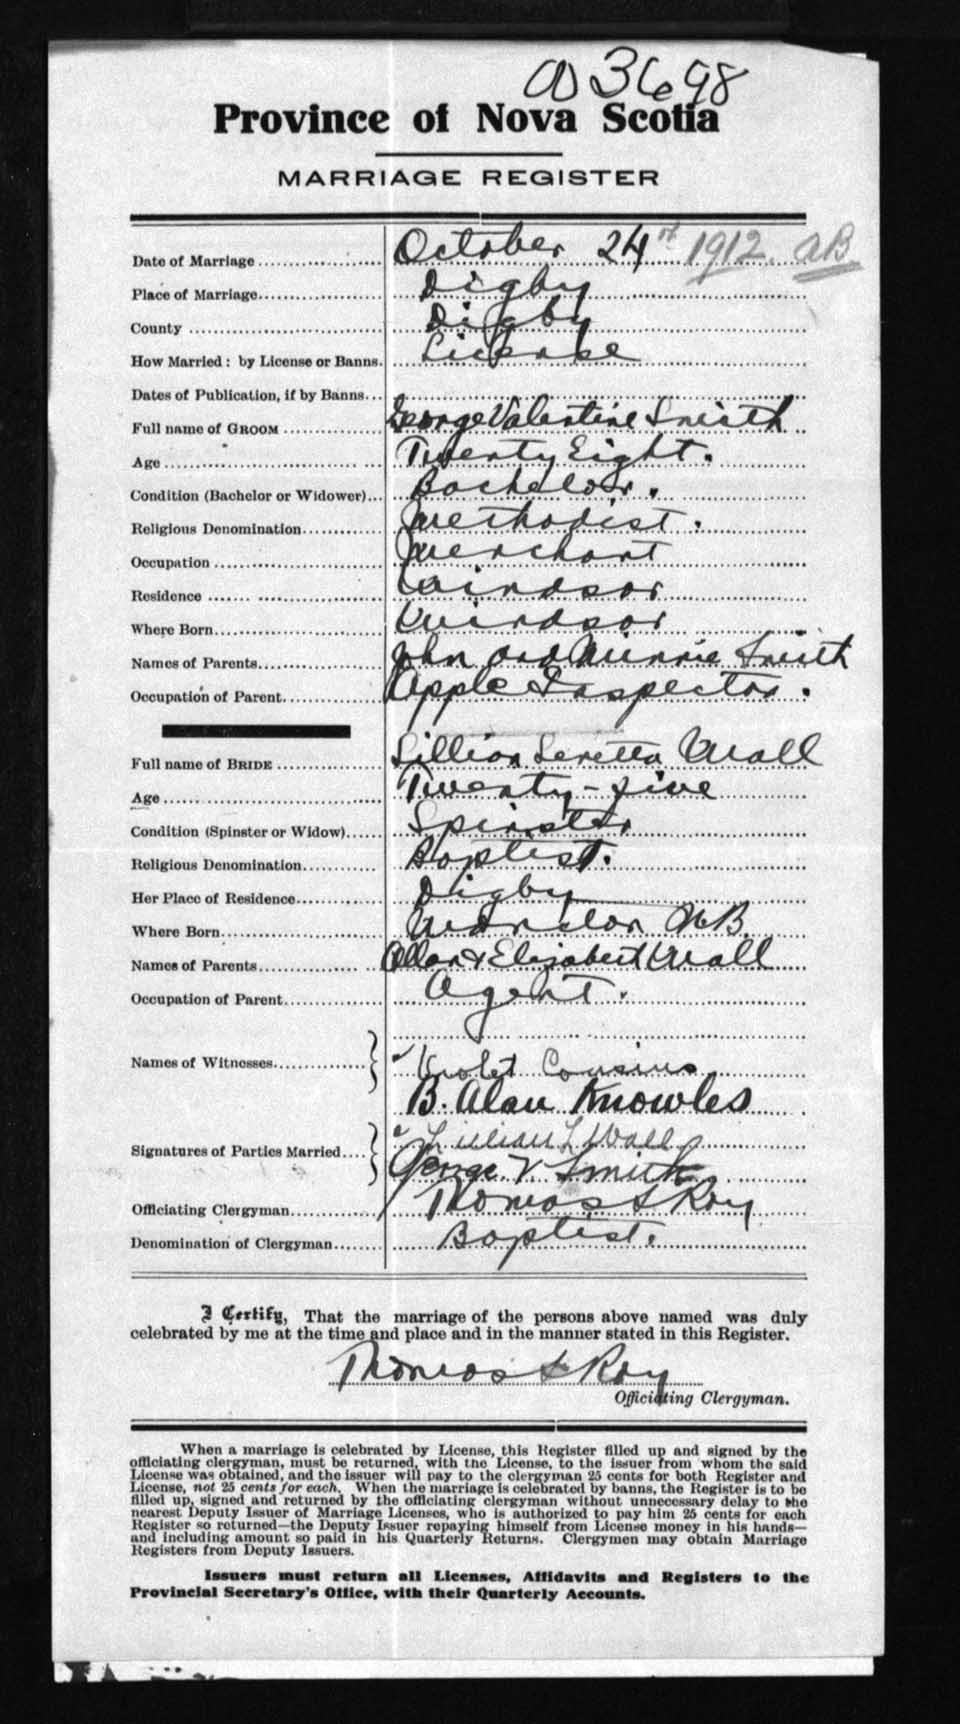 3698
Province of Nova Scotia
MARRIAGE REGISTER
Date of Marriage October 24 1912. AB
Place of Marriage Digby
County Digby
How Married: by License or Banns. License
Dates of Publication, if by Banns
Full name of GROOM George Valentine Smith
Age Twenty Eight.
Condition (Bachelor or Widower) Bachelor.
Religious Denomination Methodist.
Occupation Merchant
Residence Windsor
Where Born Windsor
Names of Parents John and Minnie Smith
Occupation of Parent Apple Inspector.
Full name of BRIDE Lillian Leretta Wall
Age Twenty-five
Condition (Spinster or Widow) Spinster
Religious Denomination Baptist.
Her Place of Residence Digby
Where Born Moncton NB.
Names of Parents Allan & Elizabeth Wall
Occupation of Parent Agent.
Names of Witnesses Violet Cousins
B. Alan Knowles
Signatures of Parties Married Lillian L Wall
George V. Smith
Officiating Clergyman Thomas S Roy
Denomination of Clergyman Baptist.
I Certify, That the marriage of the persons above named was duly
celebrated by me at the time and place and in the manner stated in this Register.
Thomas S Roy
Officiating Clergyman.
When a marriage is celebrated by License, this Register filled up and signed by the
officiating clergyman, must be returned, with the License, to the issuer from whom the said
License was obtained, and the issuer will pay to the clergyman 25 cents for both Register and
License, not 25 cents for each. When the marriage is celebrated by banns, the Register is to be
filled up, signed and returned by the officiating clergyman without unnecessary delay to the
nearest Deputy Issuer of Marriage Licenses, who is authorized to pay him 25 cents for each
Register so returned—the Deputy Issuer repaying himself from License money in his hands—
and including amount so paid in his Quarterly Returns. Clergymen may obtain Marriage
Registers from Deputy Issuers.
Issuers must return all Licenses, Affidavits and Registers to the
Provincial Secretary's Office, with their Quarterly Accounts.